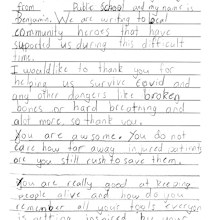 from Public School and my name is
Benjamin. We are writing to
community heroes that have
suported us during this difficult
time.
I would like to thank you for
helping us survive covid and
any other dangers like broken
bones or hard breathing and
alot more, so thank you.
You are awsome. You do not
care how far away injured patients
are you still rush to save them.
You are really good at keeping
people alive and how do you
remember all your tools everyone
is getting inspired by your